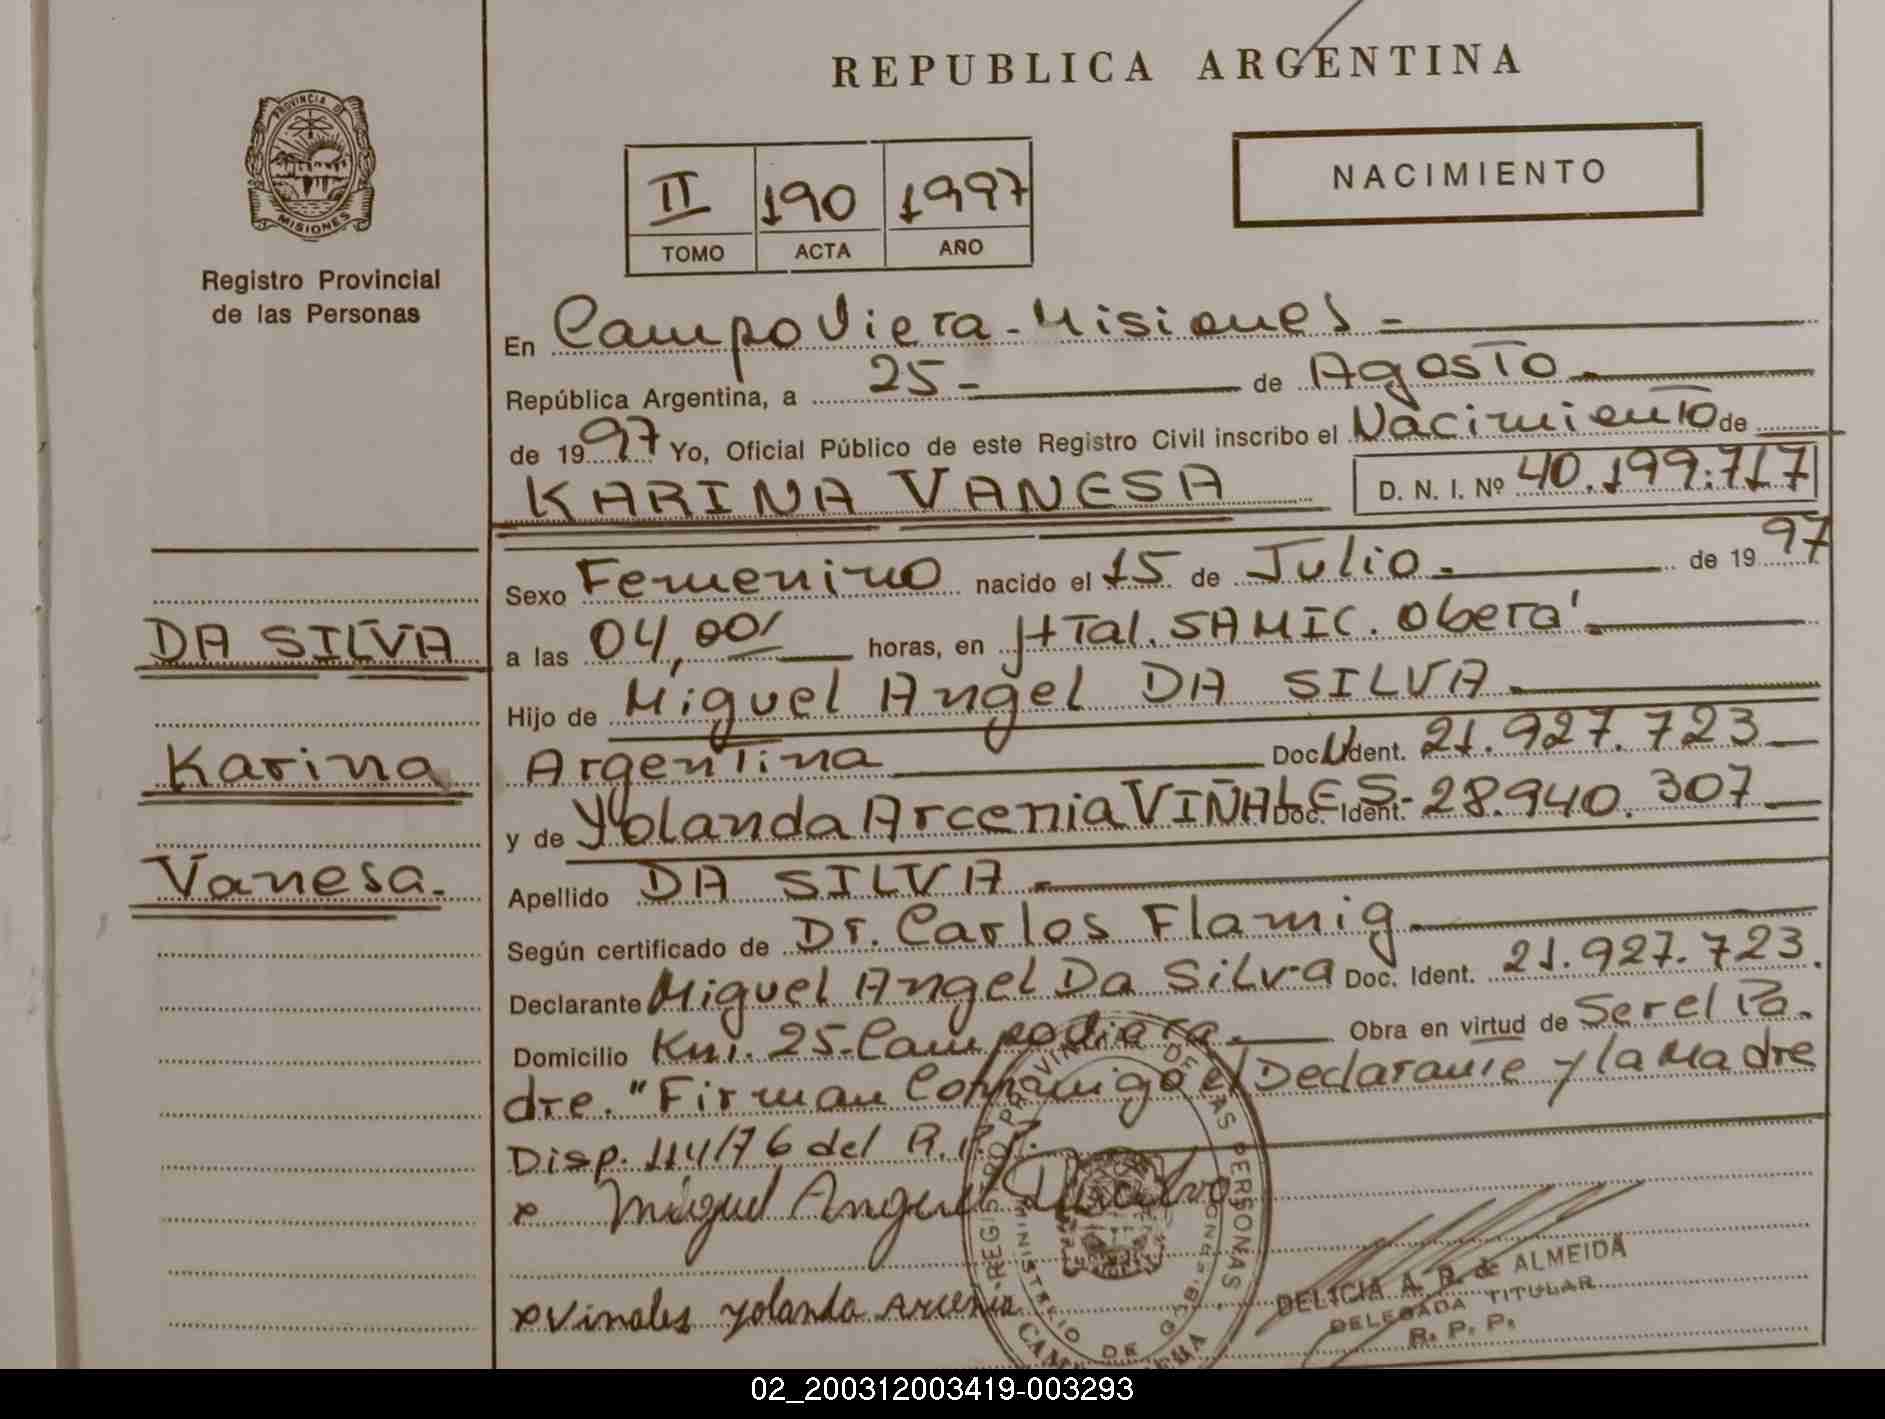 REPUBLICA ARGENTINA
PROVINCIA DE
MISIONES
Registro Provincial
de las Personas
II 190 1997
TOMO ACTA AÑO
NACIMIENTO
En Campo Viera - Misiones -
República Argentina, a 25 - de Agosto
de 1997 Yo, Oficial Público de este Registro Civil inscribo el Nacimiento de
KARINA VANESA D. N. I. Nº 40.199.717
Sexo Femenino nacido el 15 de Julio. de 1997
a las 04,00/ horas, en HTal. SAMIC. Oberá.
Hijo de Miguel Angel DA SILVA
Argentina Doc. U Ident. 21.927.723
y de Yolanda Arcenia VIÑALES - Doc. Ident. 28.940.307
Apellido DA SILVA
Según certificado de Dr. Carlos Flamig
Declarante Miguel Angel Da Silva Doc. Ident. 21.927.723.
Domicilio Km. 25 - Campo Viera. Obra en virtud de Ser el Pa.
dre. "Firman Conmigo el Declarante y la Madre
Disp. 114/76 del R.P.P.
x Miguel Angel Dasilva
x Viñales yolanda arcenia
DA SILVA
Karina
Vanesa.
REGISTRO PROVINCIAL DE LAS PERSONAS
MINISTERIO DE GOBIERNO
DELICIA A. R. de ALMEIDA
DELEGADA TITULAR
R. P. P.
02_200312003419-003293